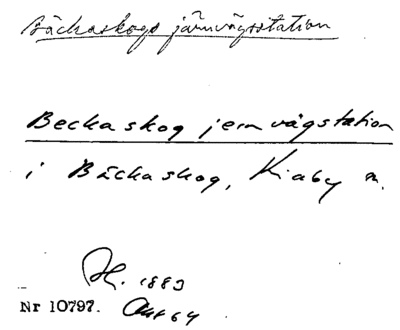 Bäckaskogs järnvägsstation
Beckaskog jernvägstation
i Bäckaskog, Kiaby sn.
1883
Nr 10797.